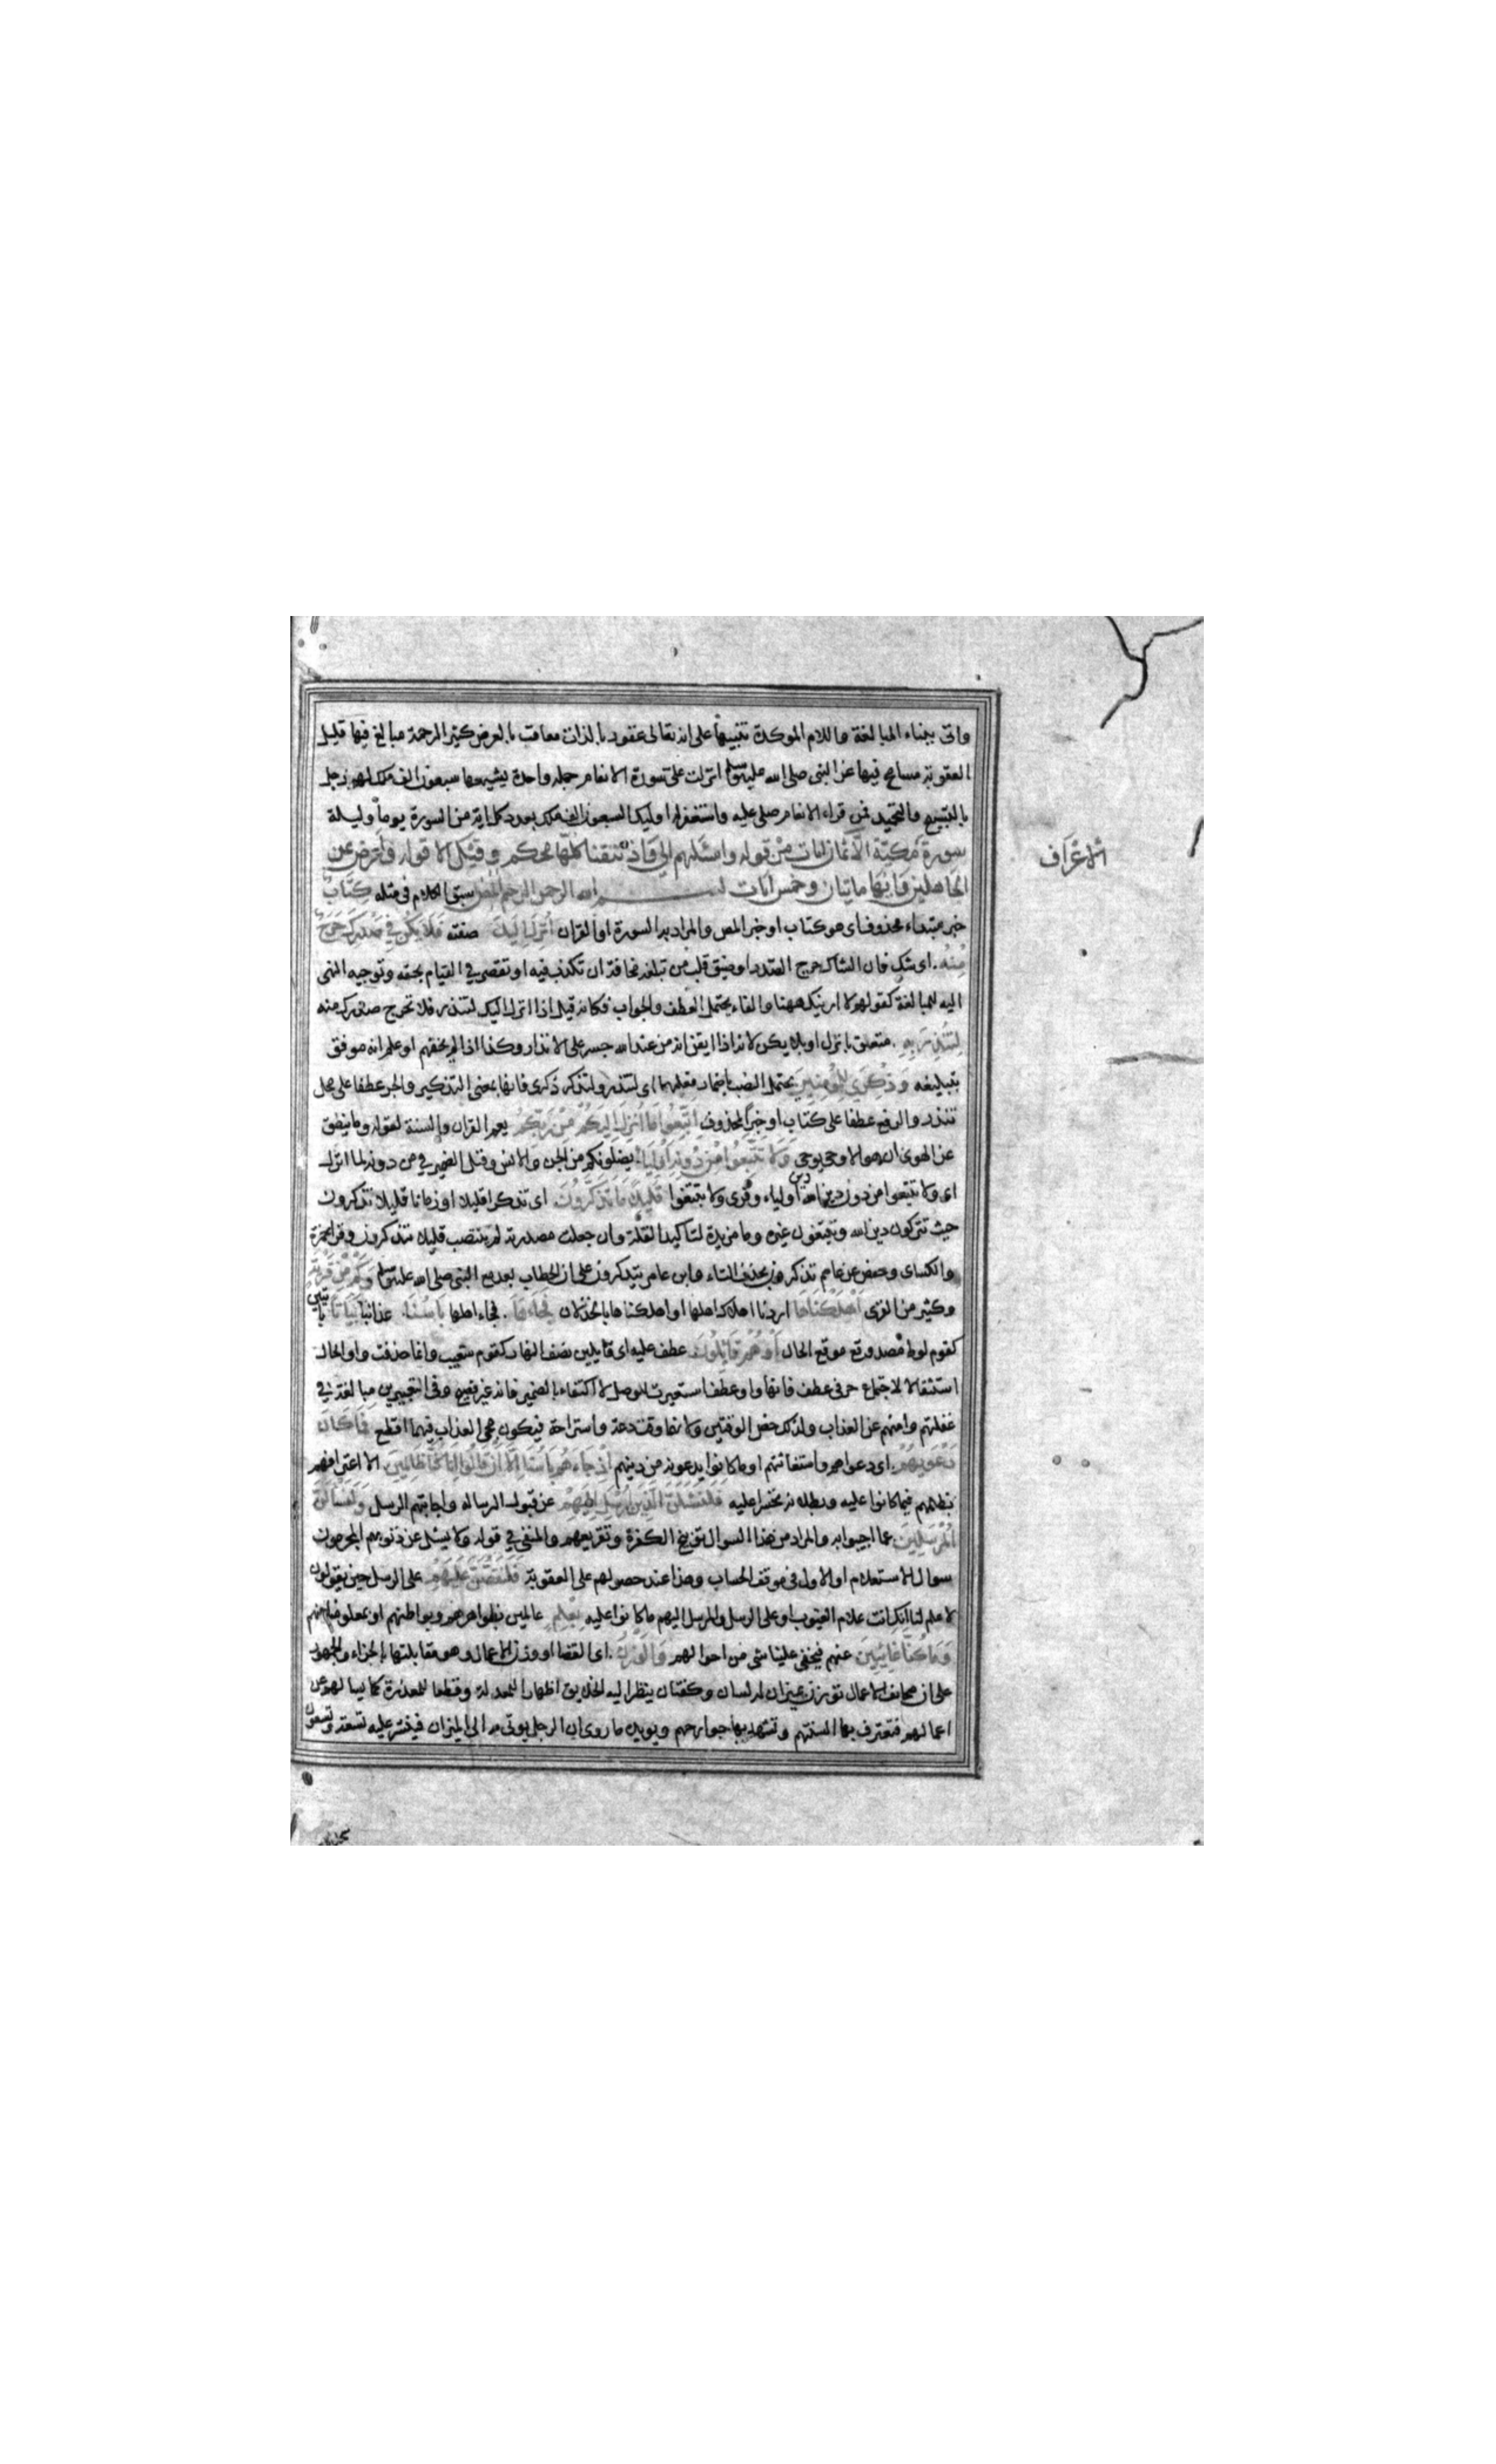 واتى ببناء المبالغة واللام الموكدة تنبيها على انه تعالى غفور بالذات معاقب بالعرض كثير الرحمة مبالغ فيها قليل
العقوبة مسامح فيها عن النبى صلى الله عليه وسلم انزلت على سورة الانعام جملة واحدة يشيعها سبعون الف ملك لهم زجل
بالتسبيح والتحميد فمن قراء الانعام صلى عليه واستغفر له اوليك السبعون الف ملك بعدد كل اية من السورة يوما وليلة
سورة مكية الا ثمان ايات من قوله واسئلهم الى واذ نتقنا كلها محكم وقيل الا قوله واعرض عن
الجاهلين وايها مايتان وخمس ايات بسم الله الرحمن الرحيم المص سبق الكلام فى مثله كتاب
خبر مبتداء محذوف اى هو كتاب او خبر المص والمراد به السورة او القران انزل اليك صفته فلا يكن فى صدرك حرج
منه اى شك فان الشاك حرج الصدر او ضيق قلب من تبليغه مخافة ان تكذب فيه او تقصر فى القيام بحقه وتوجيه النهى
اليه للمبالغة كقولهم لا ارينك ههنا والفاء يحتمل العطف والجواب فكانه قيل اذا انزل اليك لتنذر فلا تحرج صدرك منه
لتنذر به متعلق بانزل او بلا يكن لانه اذا ايقن انه من عند الله جسر على الانذار وكذا اذا لم يخفهم او علم انه موفق
بتبليغه وذكرى للمومنين يحتمل النصب باضمار فعلها اى لتنذر ولتذكر ذكرى فانها بمعنى التذكير والجر عطفا على محل
تنذر والرفع عطفا على كتاب او خبرا لمحذوف اتبعوا ما انزل اليكم من ربكم يعم القران والسنة لقوله وما ينطق
عن الهوى ان هو الا وحى يوحى ولا تتبعوا من دونه اولياء يضلونكم من الجن والانس وقيل الضمير فى من دونه لما انزل
اى ولا تتبعوا من دون دين الله دين اولياء وقرى ولا تبتغوا قليلا ما تذكرون اى تذكرا قليلا او زمانا قليلا تذكرون
حيث تتركون دين الله وتبتغون غيره وما مزيدة لتاكيد القلة وان جعلت مصدرية لم ينتصب قليلا بتذكرون وقرا حمزة
والكساى وحفص عن عاصم تذكرون بحذف التاء وابن عامر يتذكرون على ان الخطاب بعد مع النبى صلى الله عليه وسلم وكم من قرية
وكثير من القرى اهلكناها اردنا اهلاك اهلها او اهلكناها بالخذلان فجاءها فجاء اهلها باسنا عذابنا بياتا بايتين
كقوم لوط مصدر وقع موقع الحال او هم قايلون عطف عليه اى قايلين نصف النهار كقوم شعيب وانما حذفت واو الحال
استثقالا لاجتماع حرفى عطف فانها واو عطف استعيرت للوصل لا اكتفاء بالضمير فانه غير فصيح وفى التعبيرين مبالغة فى
غفلتهم وامنهم عن العذاب ولذلك خص الوقتين ولانهما وقت دعة واستراحة فيكون مجى العذاب فيهما افظع فما كان
دعويهم اى دعواهم واستغاثتهم او ما كانوا يدعونه من دينهم اذ جاءهم باسنا الا ان قالوا انا كنا ظالمين الا اعترافهم
بظلمهم فيما كانوا عليه وبطلانه تحسرا عليه فلنسئلن الذين ارسل اليهم عن قبول الرسالة واجابتهم الرسل ولنسالن
المرسلين عما اجيبوا به والمراد من هذا السوال توبيخ الكفرة وتقريعهم والمنفى فى قوله ولا يسئل عن ذنوبهم المجرمون
سوال الاستعلام او الاول فى موقف الحساب وهذا عند حصولهم على العقوبة فلنقصن عليهم على الرسل حين يقولون
لا علم لنا انك انت علام الغيوب او على الرسل والمرسل اليهم ما كانوا عليه بعلم عالمين بظواهرهم وبواطنهم او بمعلومنا منهم
وما كنا غايبين عنهم فيخفى علينا شى من احوالهم والوزن اى القضا او وزن الاعمال وهو مقابلتها بالجزاء والجمهور
على ان صحايف الاعمال توزن بميزان له لسان وكفتان ينظر اليه الخلايق اظهارا للمعدلة وقطعا للمعذرة كما يسالهم عن
اعمالهم فتعترف بها السنتهم وتشهد بها جوارحهم ويويده ما روى ان الرجل يوتى به الى الميزان فينشر عليه تسعة وتسعون
الاعراف